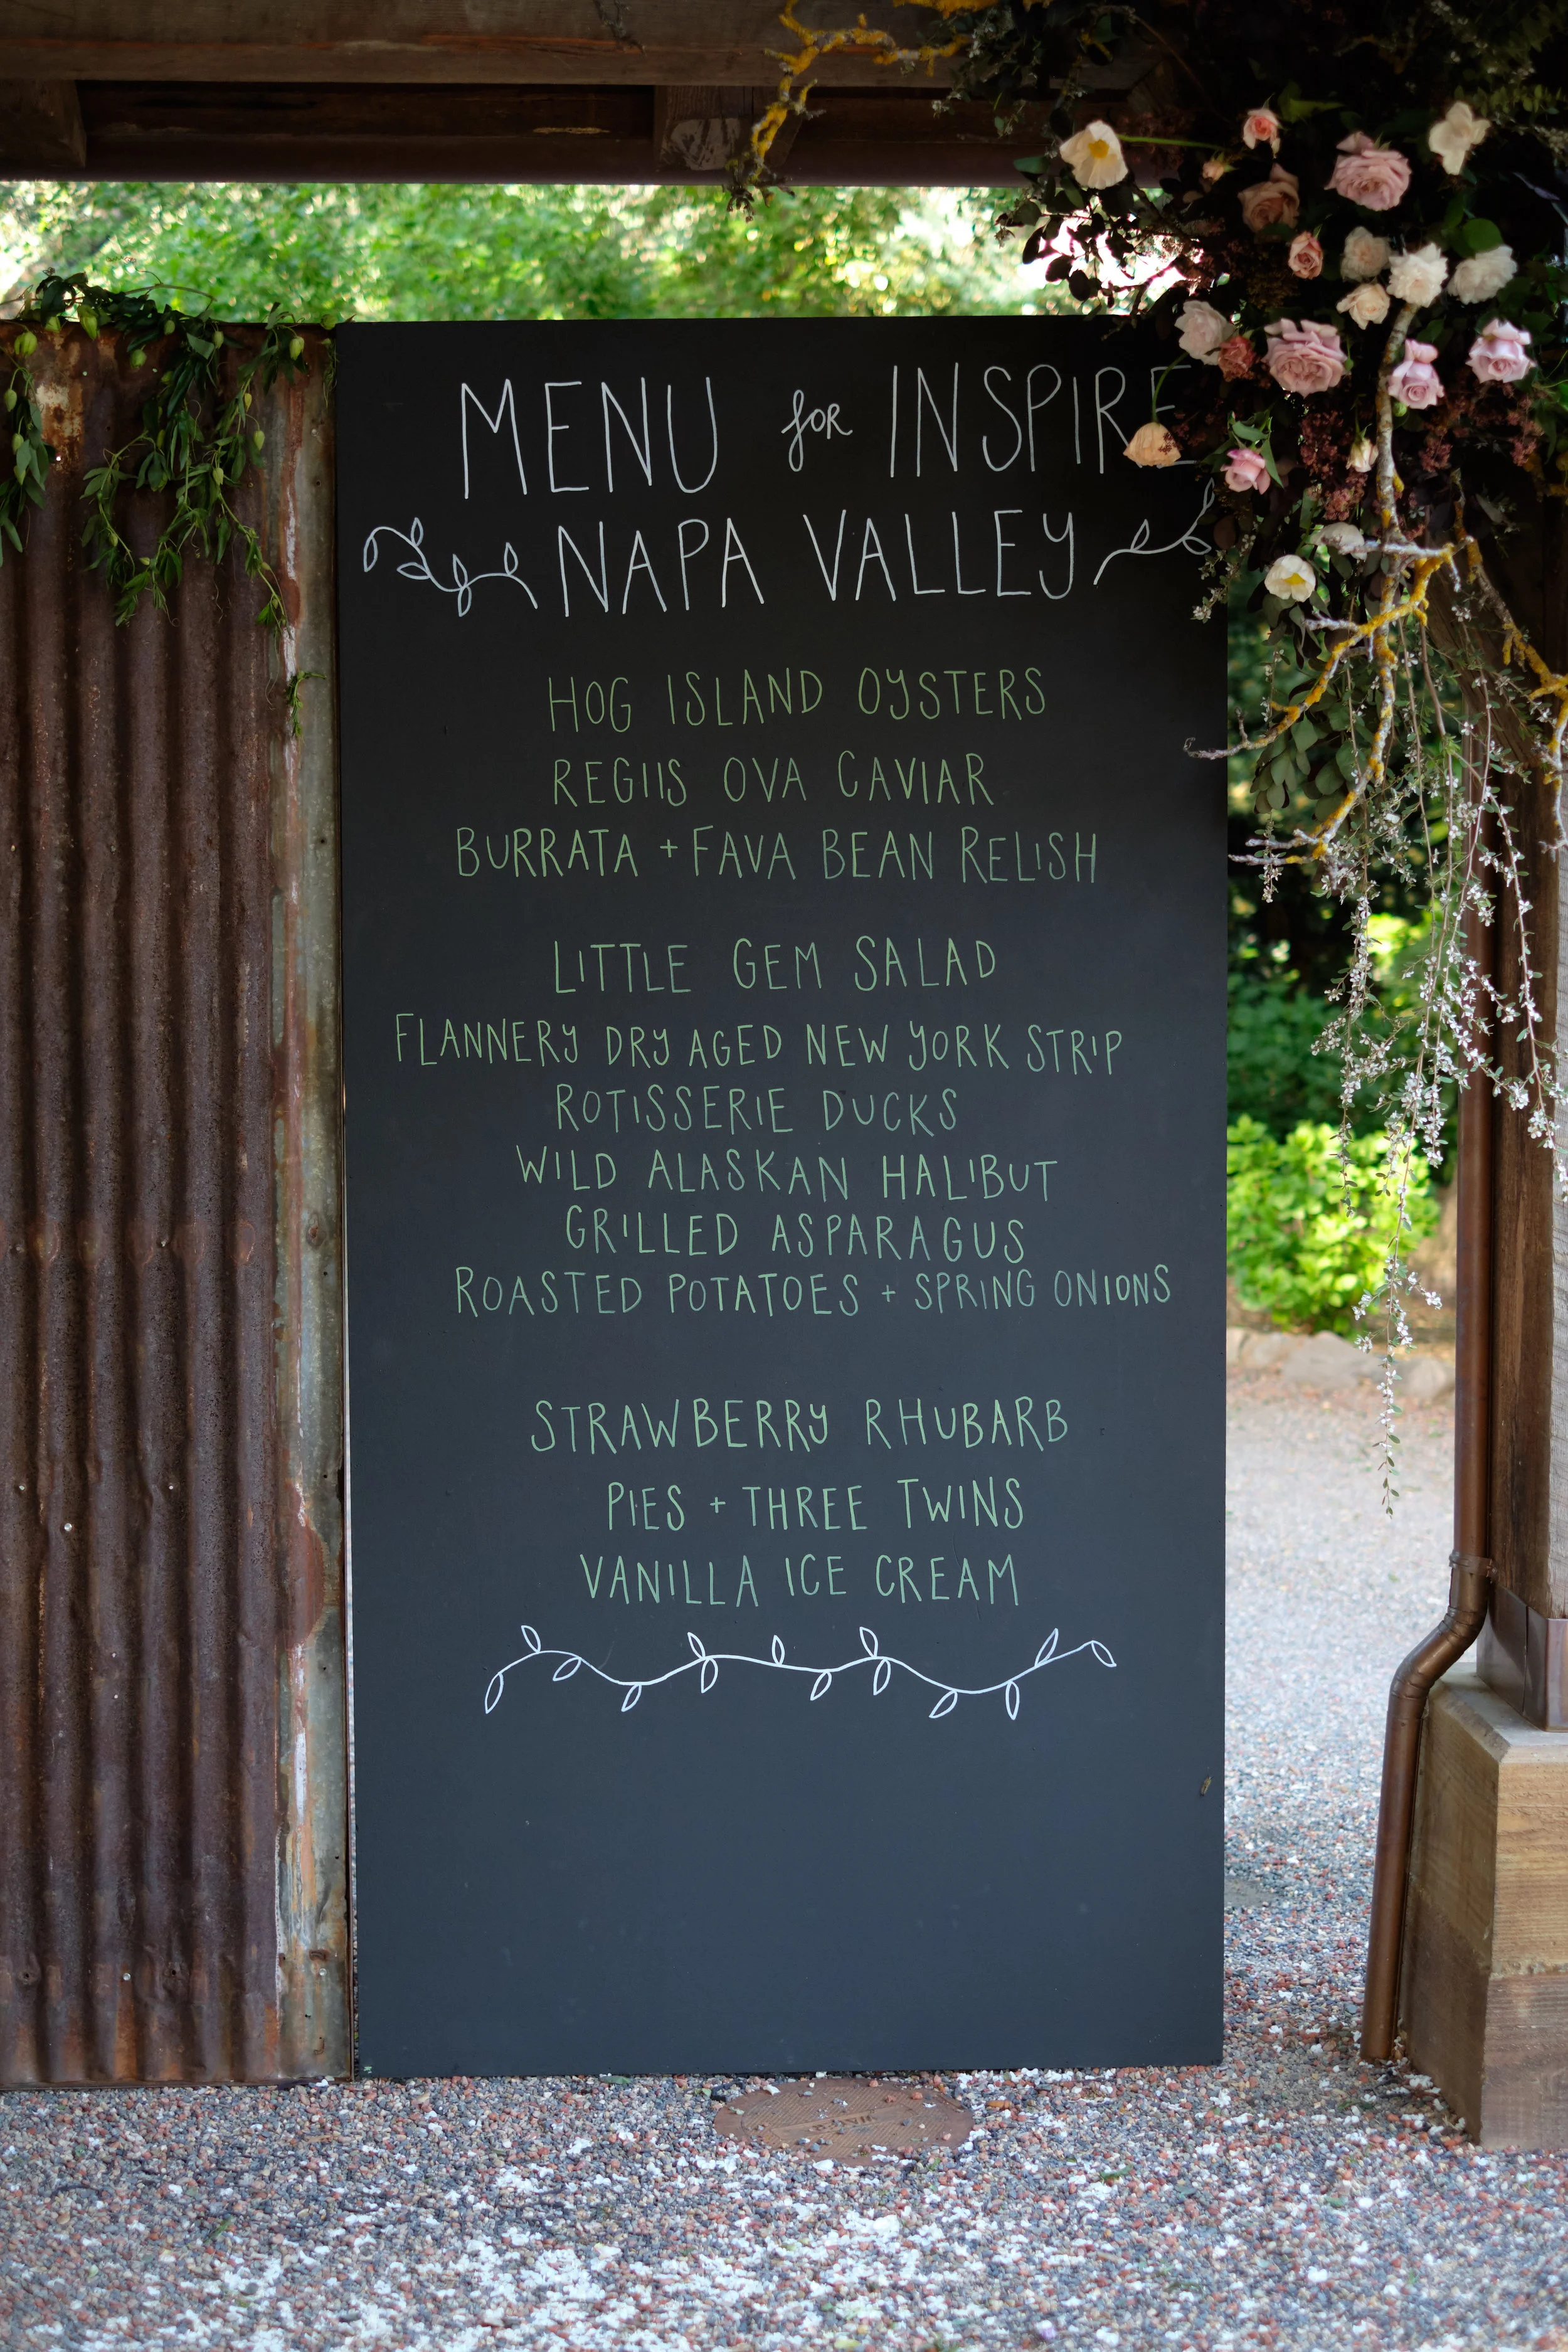 MENU for INSPIRE
NAPA VALLEY
HOG ISLAND OYSTERS
REGIIS OVA CAVIAR
BURRATA + FAVA BEAN RELISH
LITTLE GEM SALAD
FLANNERY DRY AGED NEW YORK STRIP
ROTISSERIE DUCKS
WILD ALASKAN HALIBUT
GRILLED ASPARAGUS
ROASTED POTATOES + SPRING ONIONS
STRAWBERRY RHUBARB
PIES + THREE TWINS
VANILLA ICE CREAM